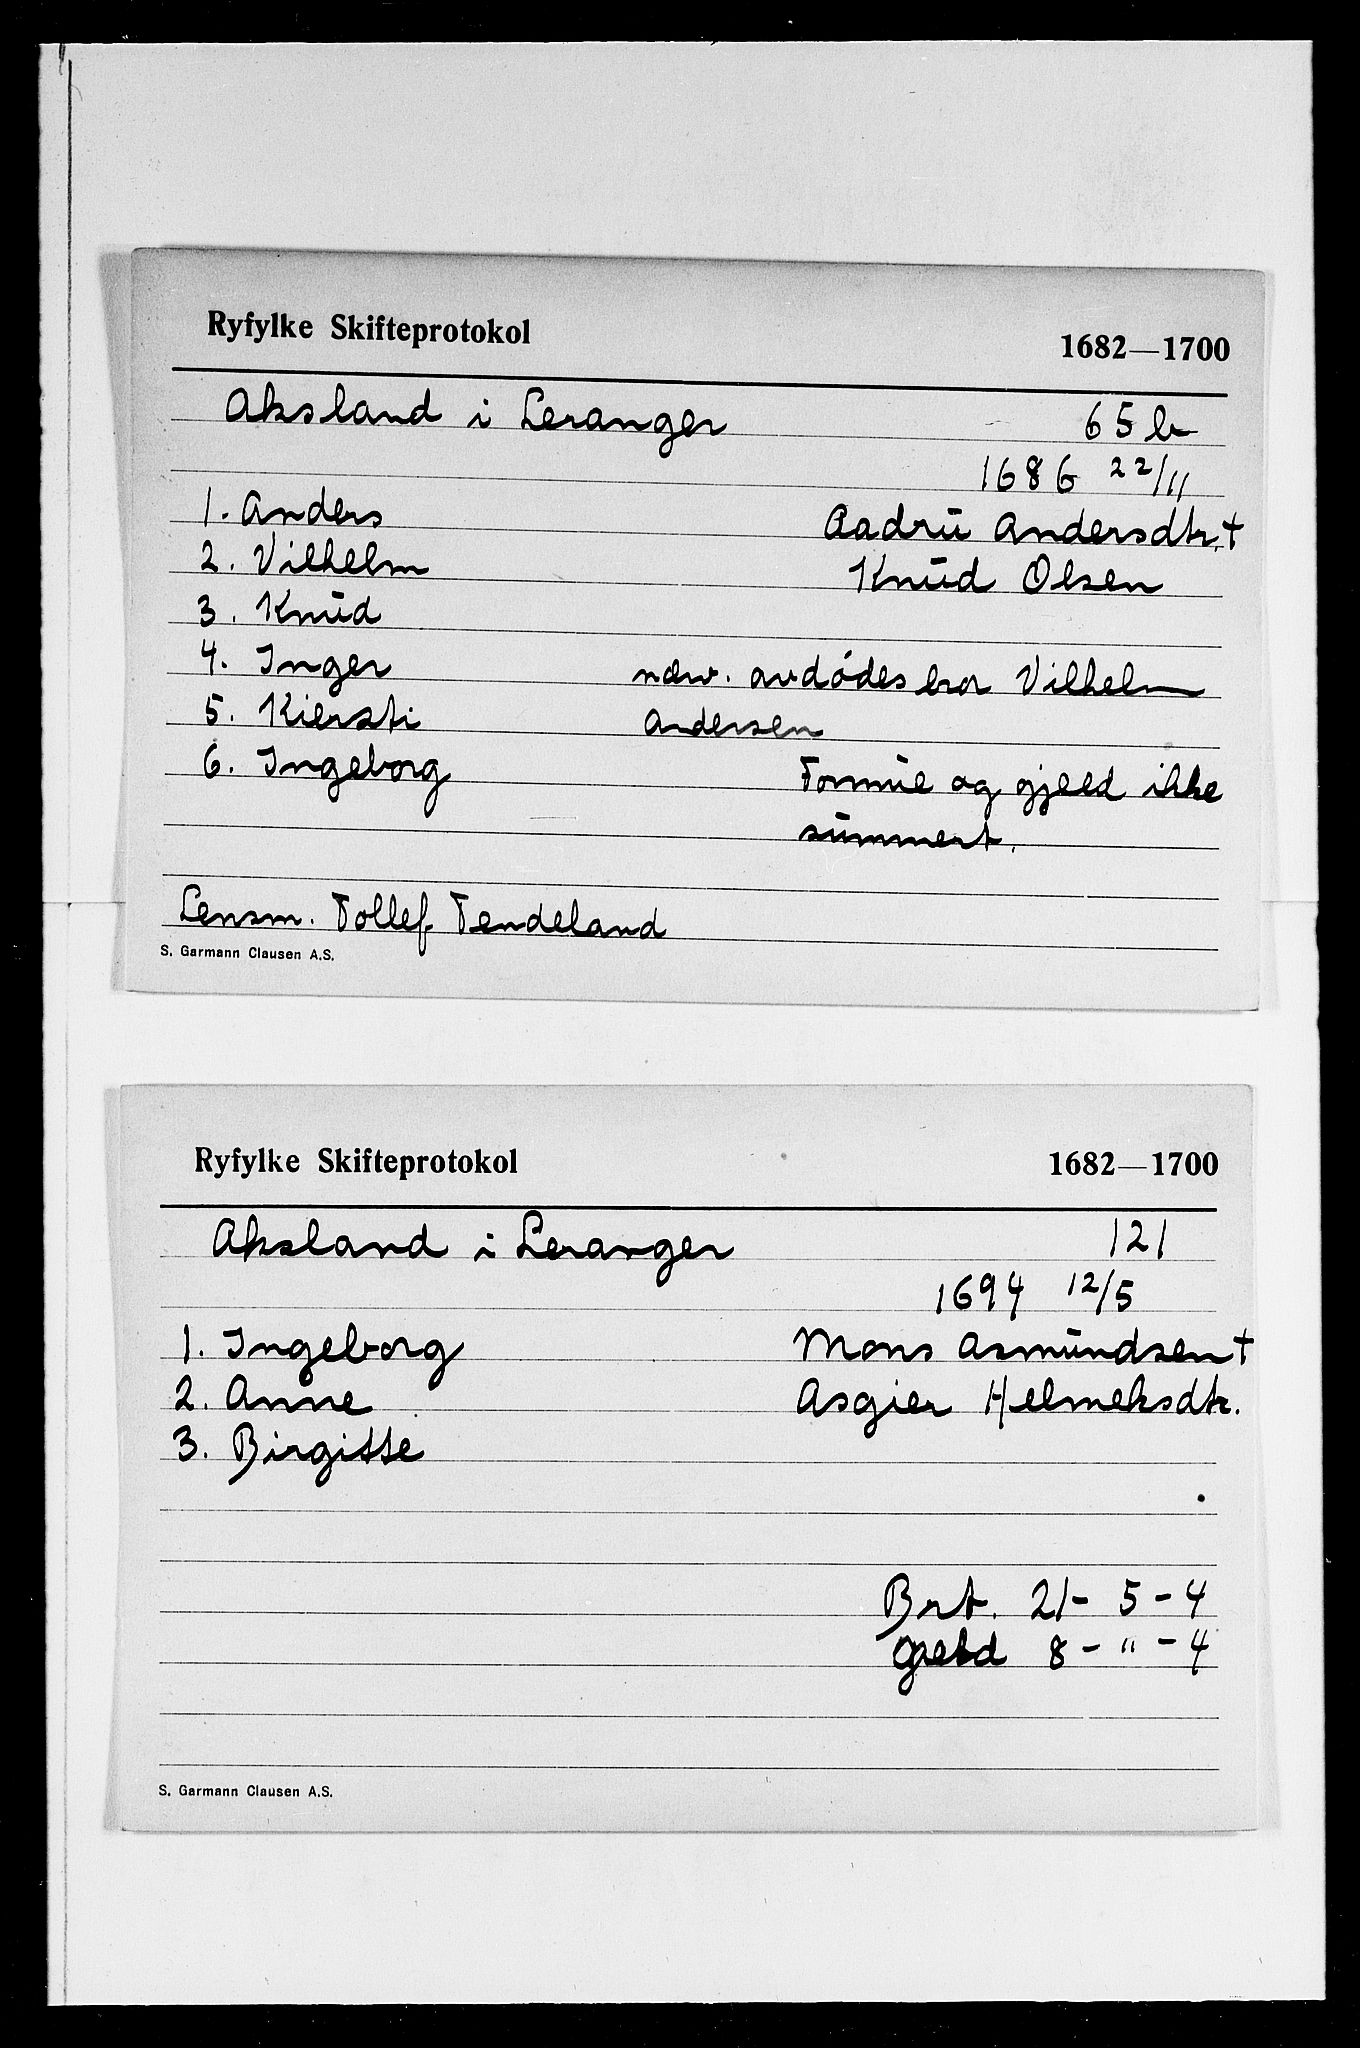 Ryfylke Skifteprotokol 1682—1700
Aksland i Leranger 65 b
1686 22/11
1. Anders Aadrŭ Andersdtr. †
2. Vilhelm Knŭd Olsen
3. Knŭd
4. Inger nærv. avdødes bror Vilhelm
5. Kiersti Andersen
6. Ingeborg Formŭe og gjeld ikke
sŭmmert.
Lensm. Tollef Tendeland
S. Garmann Clausen A.S.
Ryfylke Skifteprotokol 1682—1700
Aksland i Leranger 121
1694 12/5
1. Ingeborg Mons Asmŭndsen †
2. Anne Asgier Helmeksdtr.
3. Birgitte
Brt. 21 - 5 - 4
Gjeld 8 - " - 4
S. Garmann Clausen A.S.